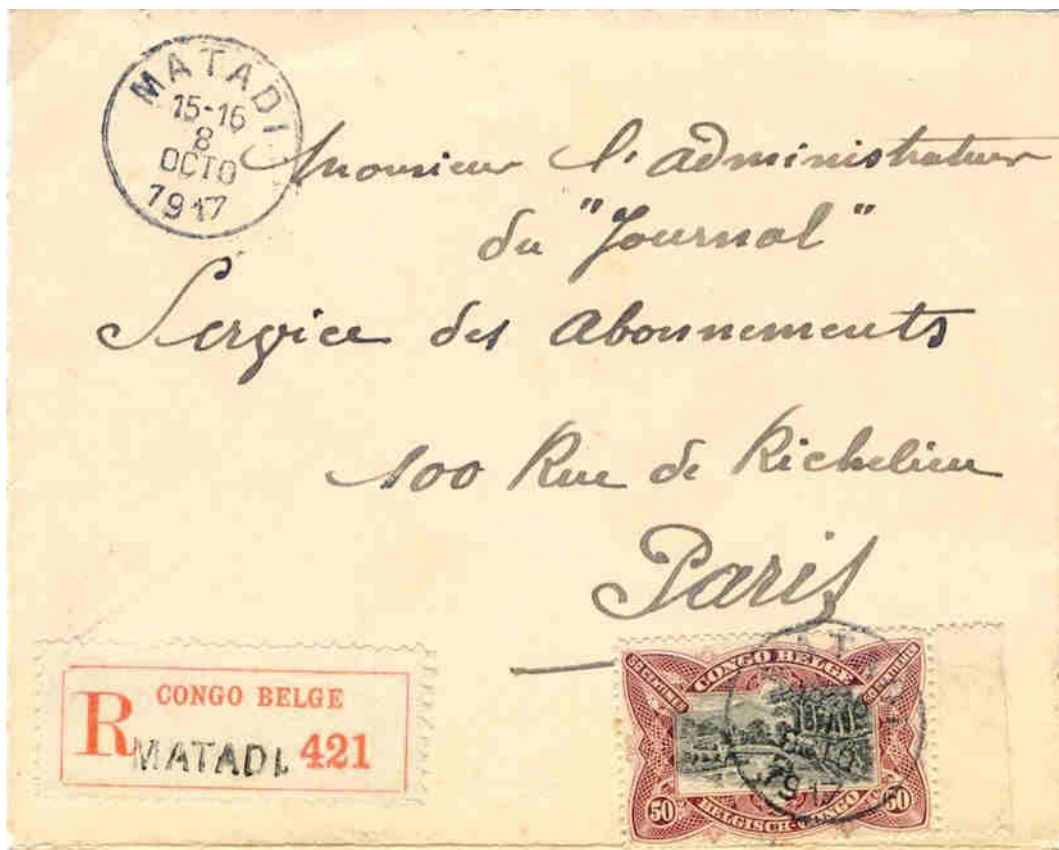 MATADI
15-16
8
OCTO
1917
Monsieur l'administrateur
du "Journal"
Service des Abonnements
100 Rue de Richelieu
Paris
R
CONGO BELGE
MATADI. 421
CONGO BELGE
1917
50 50
BELGISCH-CONGO